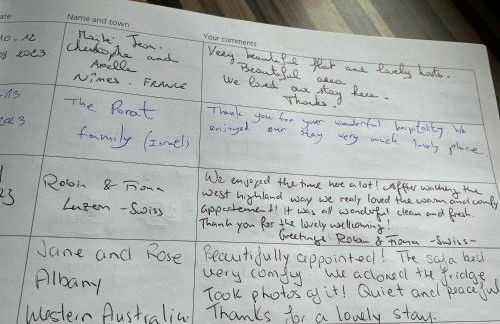 ate Name and town Your comments
10-12
08 2023
Christophe and
Axelle
Nîmes. FRANCE
Very beautiful flat and lovely hosts.
Beautiful area
We loved our stay here.
Thanks.
-13
2023
The Porat
family (Israel)
Thank you for your wonderful hospitality. We
enjoyed our stay very much, lovely place
23
Robin & Fiona
Luzern - Swiss
We enjoyed the time here a lot! After walking the
west highland way we realy loved the warm and comfy
appartement! It was all wonderful clean and fresh.
Thank you for the lovely wellcoming!
Greetings Robin & Fiona -Swiss-
Jane and Rose
Albany
Western Australia
Beautifully appointed! The sofa bed
very comfy. We adored the fridge
Took photos of it! Quiet and peaceful
Thanks for a lovely stay.